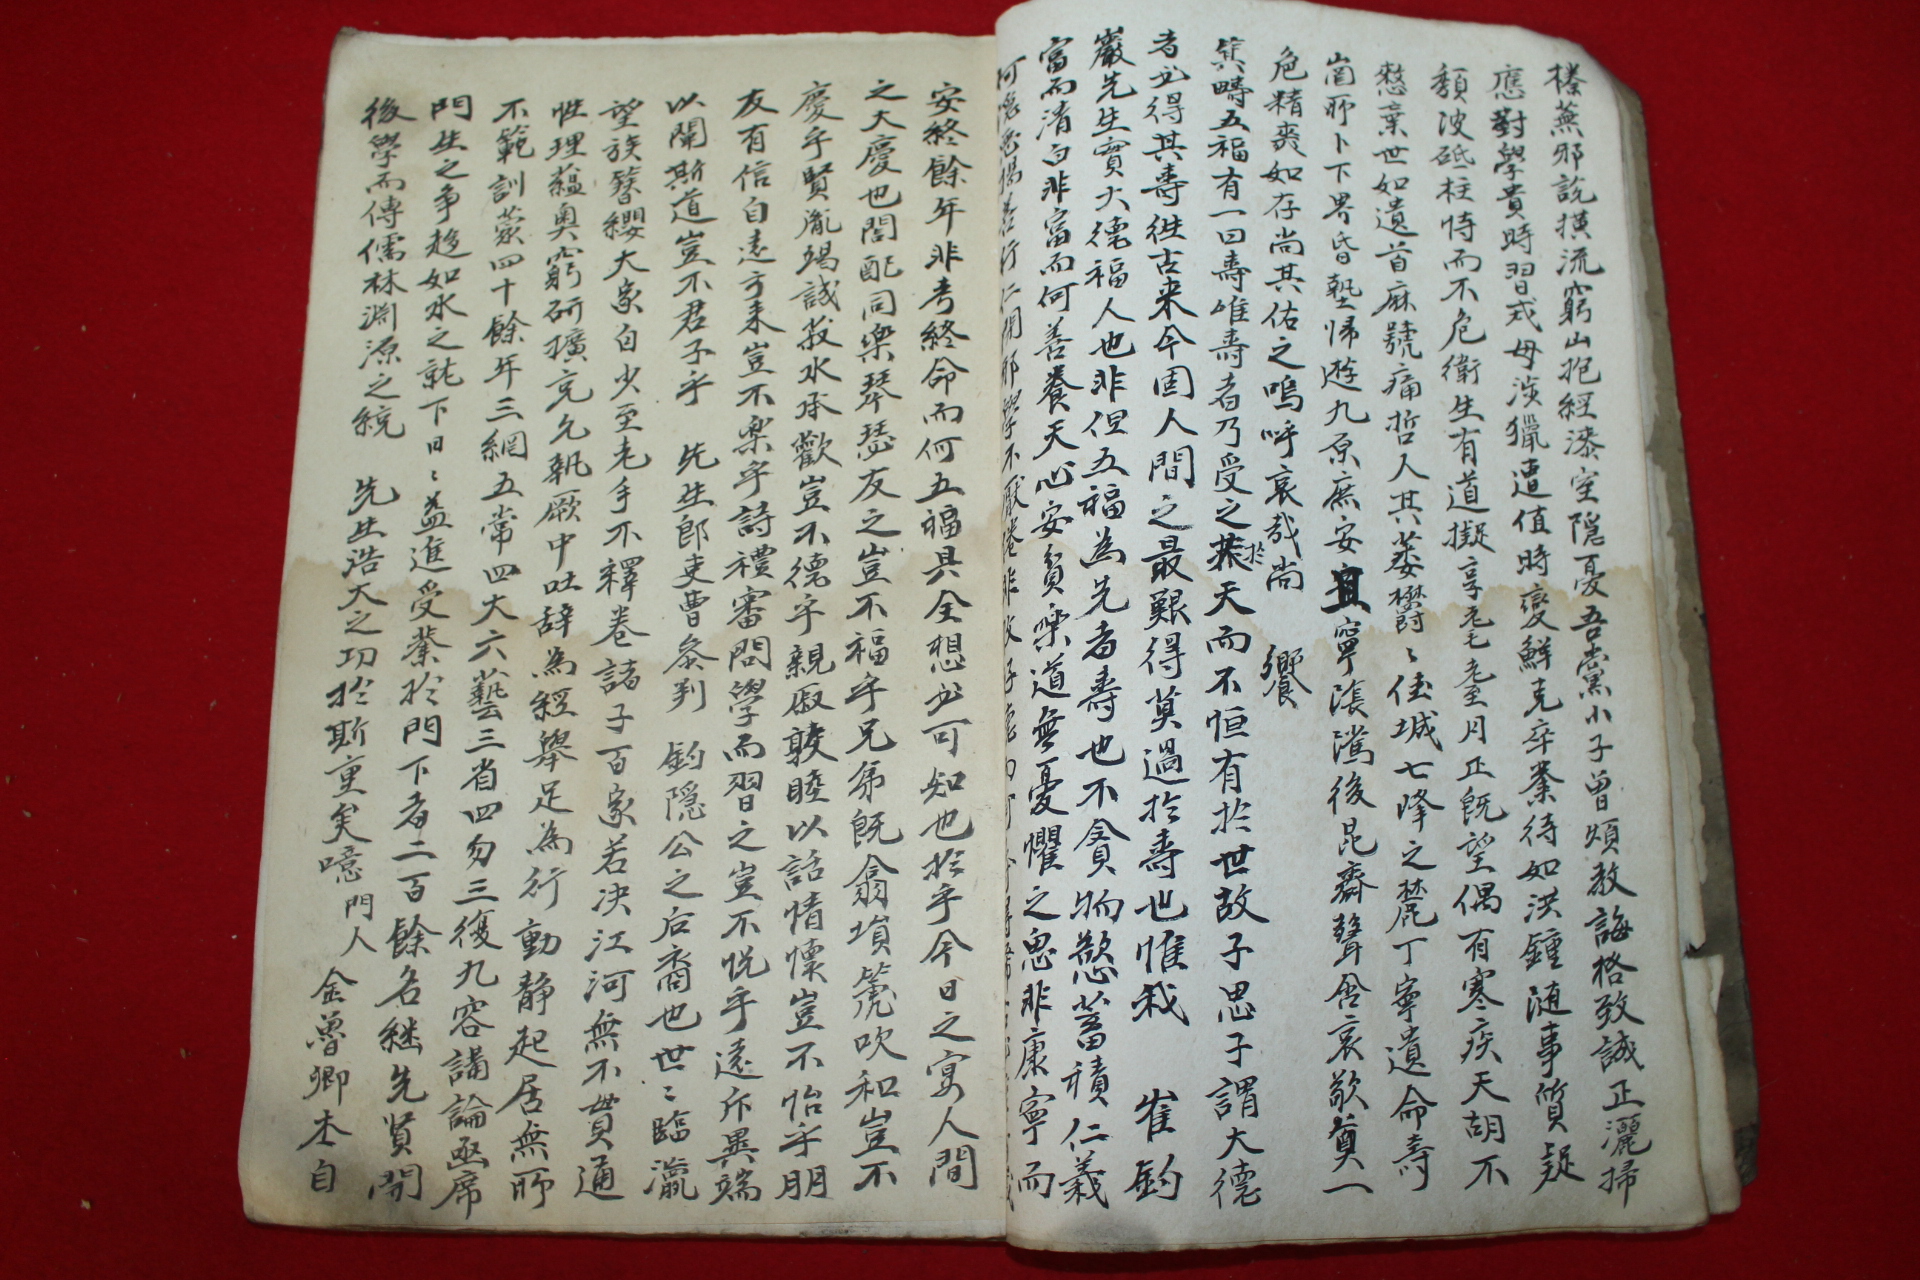 榛蕪邪說橫流窮山抱經漆室隱憂吾黨小子曾煩教誨格致誠正灑掃
應對學貴時習式毋淡獵遭值時變鮮克卒業待如洪鍾随事質疑
頹波砥柱恃而不危衛生有道擬享耄耋至月正旣望偶有寒疾天胡不
憗棄世如遺首麻號痛哲人其萎欝〻佳城七降之麓丁寧遺命壽
崗所卜下畀昏墊帰遊九原庶安且寧蔭隲後昆齋聲含哀敬奠一
危精爽如存尚其佑之嗚呼哀哉尚 饗
箕疇五福有一曰壽惟壽者乃受之於天而不恒有於世故子思子謂大德
者必得其壽徃古来今固人間之最艱得莫過於壽也惟我 崔鈞
巖先生實大德福人也非但五福為先者壽也不貪物慾蓄積仁義
富而清白非富而何善養天心安貧樂道無憂懼之思非康寧而
安終餘年非考終命而何五福具全想必可知也於乎今日之宴人間
之大慶也閤配同樂琴瑟友之豈不福乎兄弟旣翕塤篪吹和豈不
慶乎賢胤竭誠菽水承歡豈不德乎親戚敦睦以話情懷豈不怡乎朋
友有信自遠方来豈不樂乎詩禮審問學而習之豈不悅乎遠斥異端
以闡斯道豈不君子乎 先生郎吏曹叅判 釣隱公之后裔也世〻臨瀛
望族簪纓大家自少至老手不釋卷諸子百家若決江河無不貫通
性理蘊奥窮研擴充允執厥中吐辞為經舉足為行動静起居無所
不範訓蒙四十餘年三綱五常四大六藝三省四勿三復九容講論函席
門生之爭趍如水之就下日〻益進受業於門下者二百餘名継先賢開
後學而傳儒林淵源之統 先生浩大之功於斯重矣噫門人 金魯卿本自